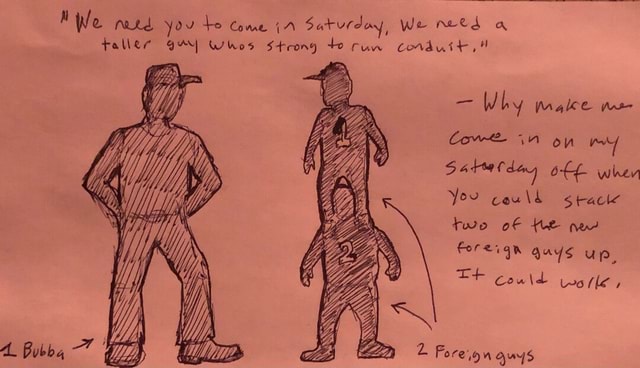 "We need you to come in Saturday, We need a
taller guy whos strong to run conduit."
- Why make me
come in on my
Saturday off when
you could stack
two of the new
foreign guys up.
It could work.
1
2
1 Bubba
2 Foreign guys